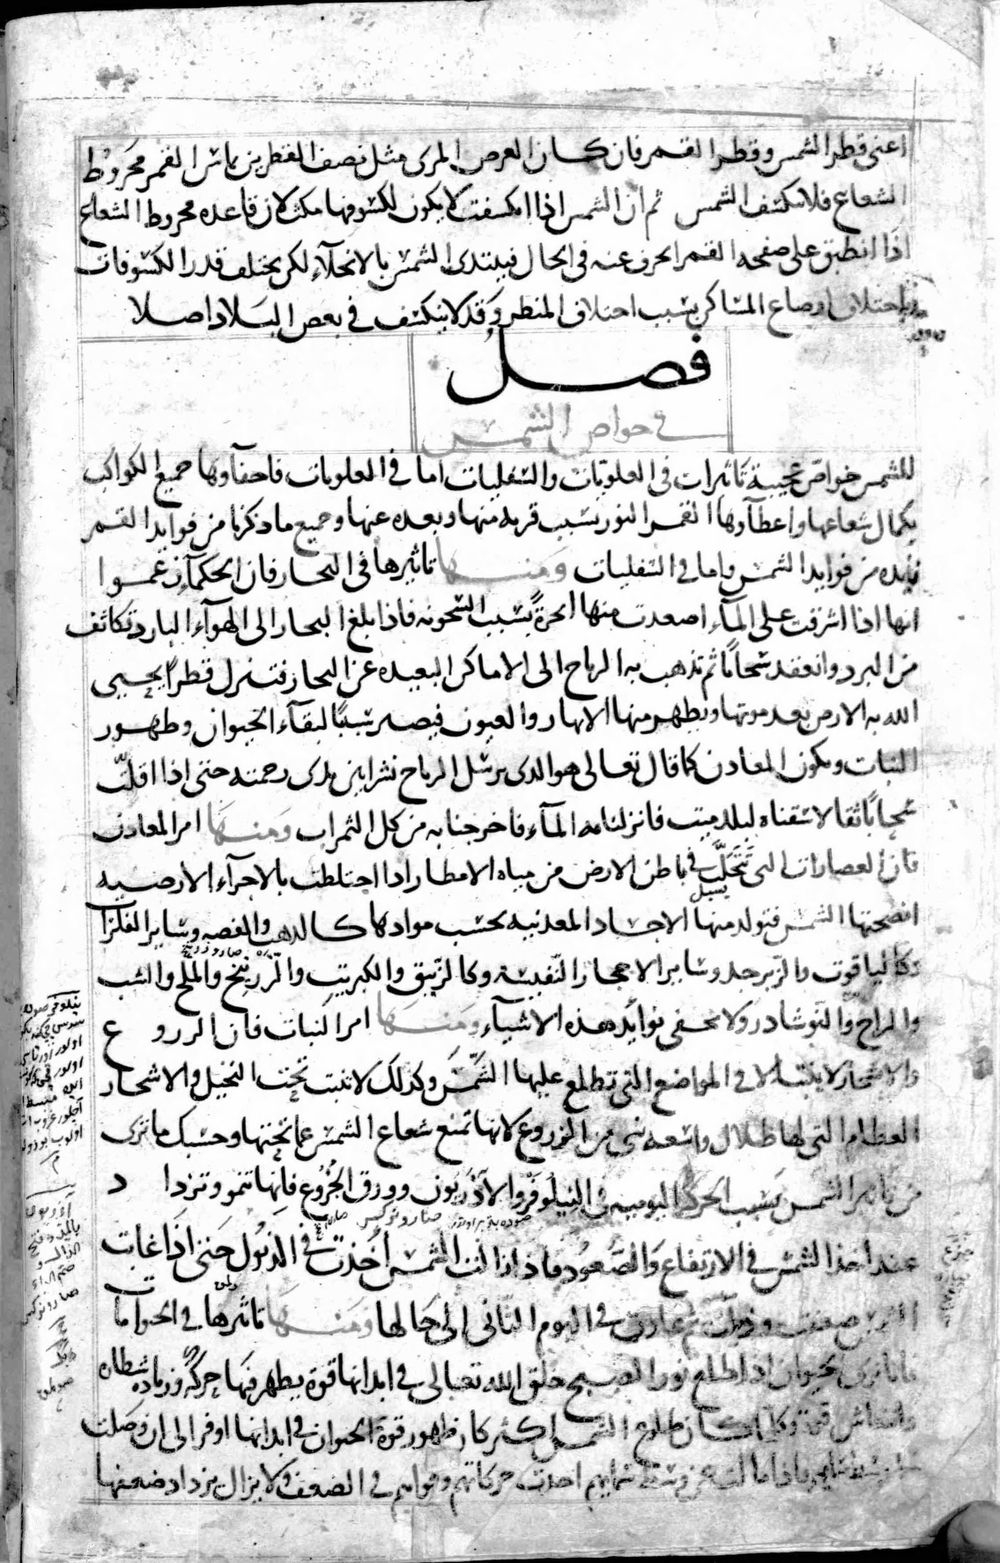 اعنى قطر الشمس وقطر القمر فان كان العرض المرى مثل نصف القطرين ماس القمر مخروط
الشعاع فلا تنكسف الشمس ثم ان الشمس اذا انكسفت لا يكون لكسوفها مكث لان قاعده مخروط الشعاع
اذا انطبق على صفحه القمر انحرف عنه فى الحال فيبتدى الشمس بالانجلاء لكن يختلف قدر الكسوفات
باختلاف اوضاع المساكن بسبب اختلاف المنظر وقد لا ينكسف فى بعض البلاد اصلا
فصل
فى خواص الشمس
للشمس خواص عجيبة تاثيرات فى العلويات والسفليات اما فى العلويات فاخفاوها جميع الكواكب
بكمال شعاعها واعطآوها القمر النور بسبب قربه منها وبعده عنها وجميع ما ذكرنا من فوايد القمر
فايده من فوايد الشمس واما فى السفليات ومنها تاثيرها فى البحار فان الحكماء زعموا
انها اذا اشرقت على المآء اصعدت منها ابخرة بسبب السخونه فاذا بلغ البخار الى الهوآء البارد تكاثف
من البرد وانعقد سحابا ثم تذهب به الرياح الى الاماكن البعيده عن البحار فتنزل قطرا يحيى
الله به الارض بعد موتها ويظهر منها الانهار والعيون فيصير سببا لبقآء الحيوان وظهور
النبات وتكون المعادن كما قال تعالى هو الذى يرسل الرياح نشرا بين يدى رحمته حتى اذا اقلت
سحابا ثقالا سقناه لبلد ميت فانزلنا به المآء فاخرجنا به من كل الثمرات ومنها امر المعادن
فان العصارات التى تتحلب فى باطن الارض من مياه الامطار اذا اختلطت بالاجزآء الارضيه
انضجتها الشمس فتولد منها الاجساد المعدنيه بحسب موادها كالذهب والفضه وساير الفلزات
وكالياقوت والزبرجد وساير الاحجار النفيسة وكالزيبق والكبريت والزرنيخ والملح والشب
والزاج والنوشادر ولا يخفى فوايد هذه الاشيآء ومنها امر النبات فان الزروع
والاشجار لا ينبت الا فى المواضع التى تطلع عليها الشمس وكذلك لا تنبت تحت النخيل والاشجار
العظام التى لها ظلال واسعه شى من الزروع لانها تمنع شعاع الشمس عما تحتها وحسبك ما ترى
من تاثير الشمس بسبب الحركه اليوميه فى النيلوفر والاذريون وورق الخروع فانها تنمو وتزداد
عند اخذ الشمس فى الارتفاع والصعود فاذا زالت الشمس اخذت فى الذبول حتى اذا غابت
الشمس ضعفت وذبلت ثم عادت فى اليوم الثانى الى حالها ومنها تاثيرها فى الحيوانات
فانا نرى الحيوان اذا طلع نور الصبح خلق الله تعالى فى ابدانها قوة يظهر فيها حركة وزياده نشطان
وانتعاش قوة وكلما كان طلوع الشمس اكثر كان ظهور قوة الحيوان فى ابدانها اوفر الى ان وصلت
الى وسط سمايهم فاذا مالت عن وسط سمايهم اخذت حركاتهم وقواهم فى الضعف ولا يزال يزداد ضعفها